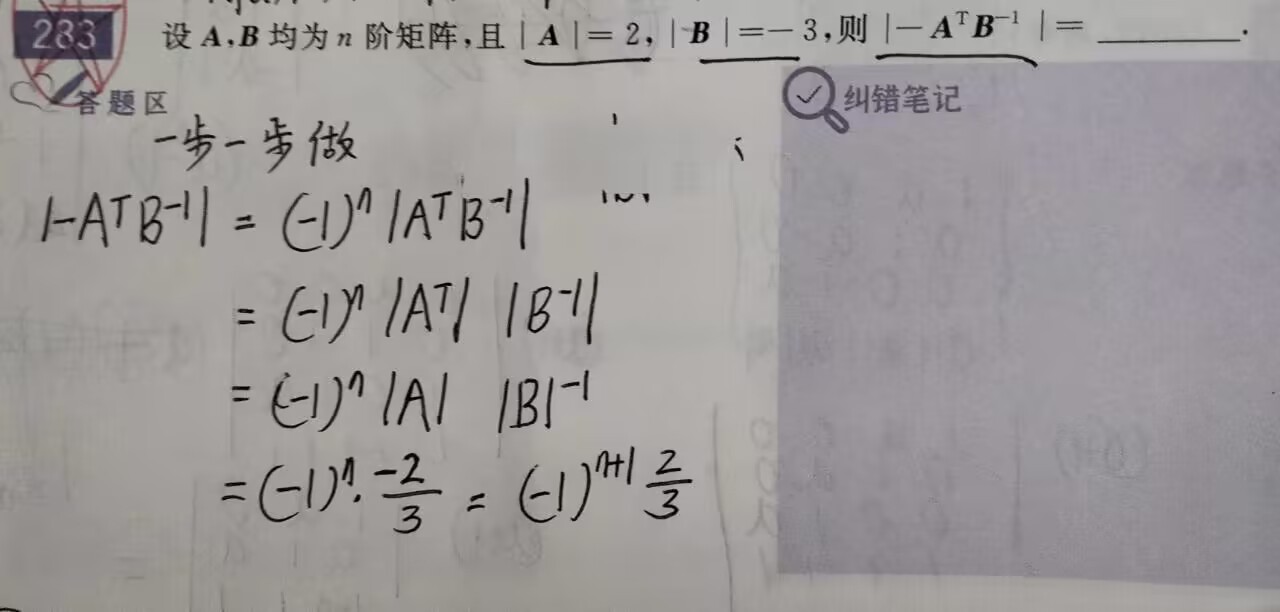 283 设 A,B 均为 n 阶矩阵,且 | A |= 2, | B |=− 3,则 |− AᵀB⁻¹ |= ________.
答题区
纠错笔记
一步一步做
|-AᵀB⁻¹| = (-1)ⁿ |AᵀB⁻¹|
= (-1)ⁿ |Aᵀ| |B⁻¹|
= (-1)ⁿ |A| |B|⁻¹
= (-1)ⁿ · -2/3 = (-1)ⁿ⁺¹ 2/3